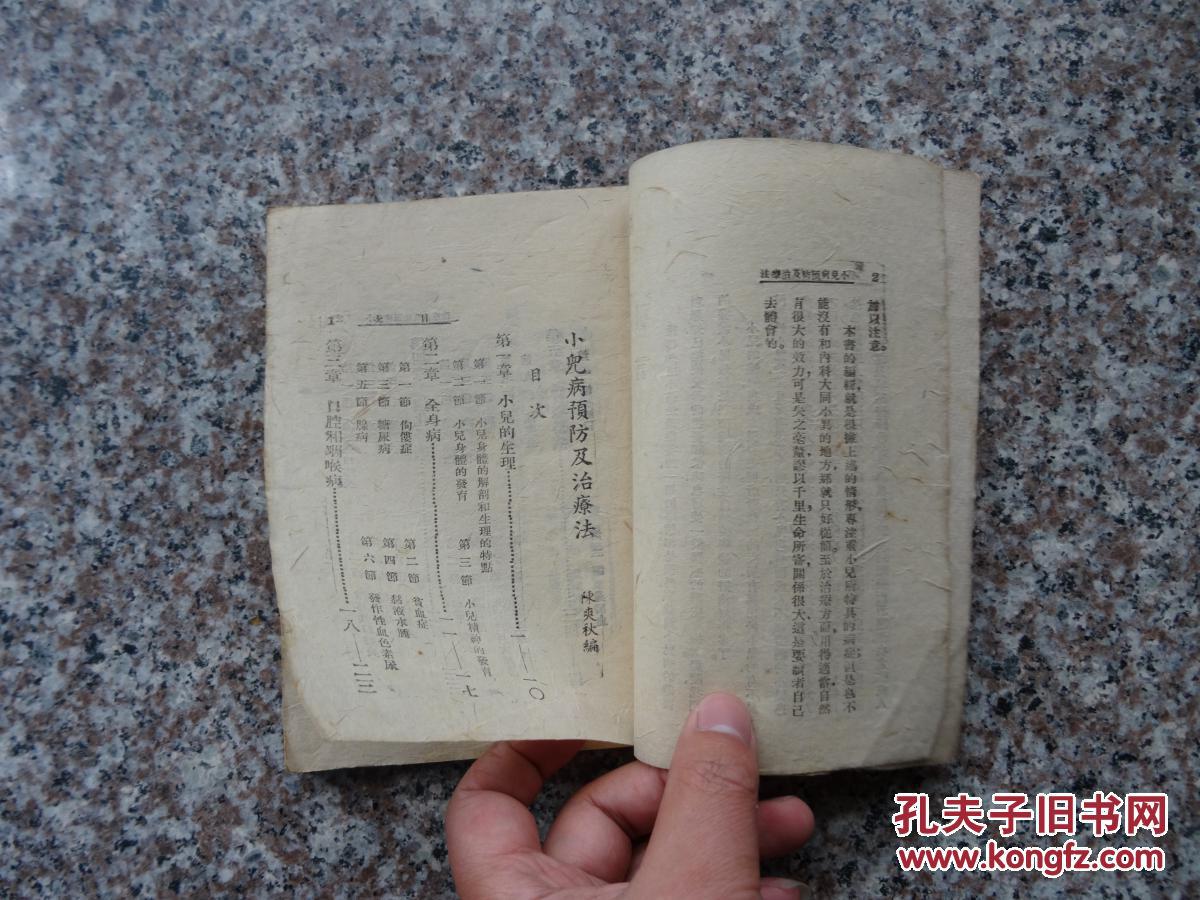 2
小兒病預防及治療法
加以注意。
本書的編輯，就是根據上述的情形，專注重小兒所特具的病症，但是也不
能沒有和內科大同小異的地方，那就只好從簡。至於治療方面，用得適當，自然
有很大的效力，可是失之毫釐，謬以千里，生命所寄，關係很大，這是要讀者自己
去體會的。
小兒病預防及治療法
陳爽秋編
目次
第一章 小兒的生理 一——一〇
第一節 小兒身體的解剖和生理的特點
第二節 小兒身體的發育 第三節 小兒精神的發育
第二章 全身病 一一——一七
第一節 佝僂症 第二節 貧血症
第三節 糖尿病 第四節 黏液水腫
第五節 腺病 第六節 發作性血色素尿
第三章 口腔和咽喉病 一八——二三
孔夫子旧书网
www.kongfz.com